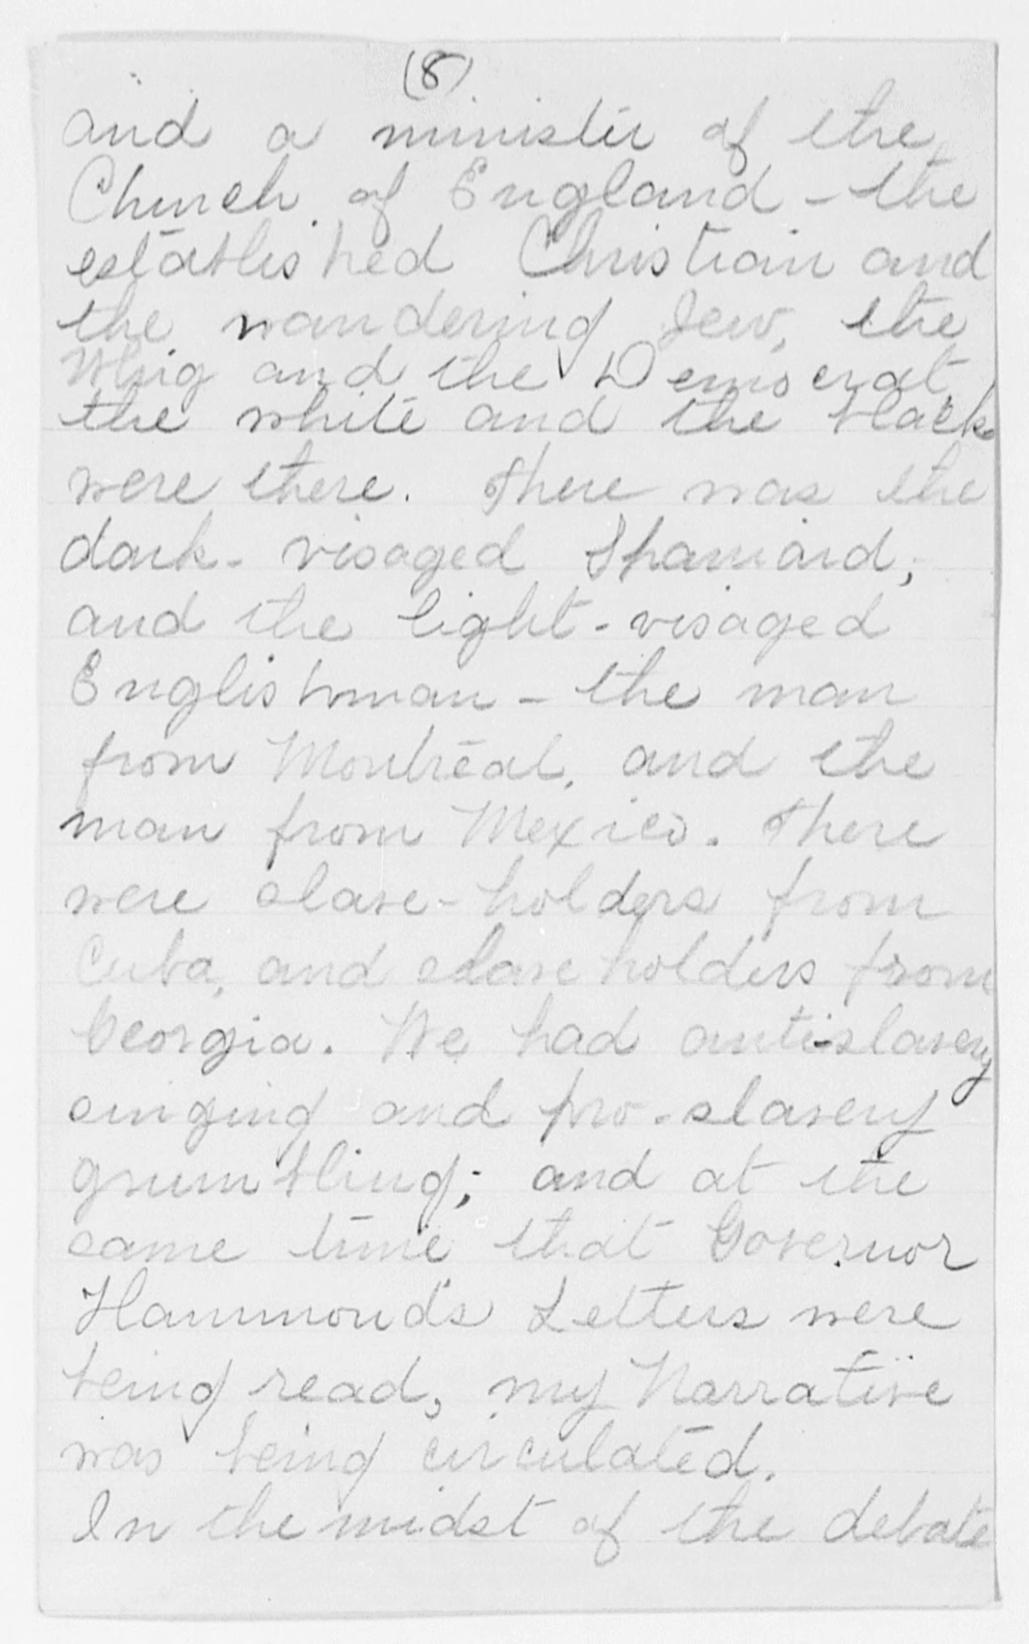 (8)
and a minister of the
Church of England - the
established Christian and
the wandering Jew, the
Whig and the Democrat,
the white and the black
were there. There was the
dark-visaged Spaniard,
and the light-visaged
Englishman - the man
from Montreal, and the
man from Mexico. There
were slave-holders from
Cuba, and slaveholders from
Georgia. We had anti-slavery
singing and pro-slavery
grumbling; and at the
same time that Governor
Hammond's Letters were
being read, my Narrative
was being circulated.
In the midst of the debate